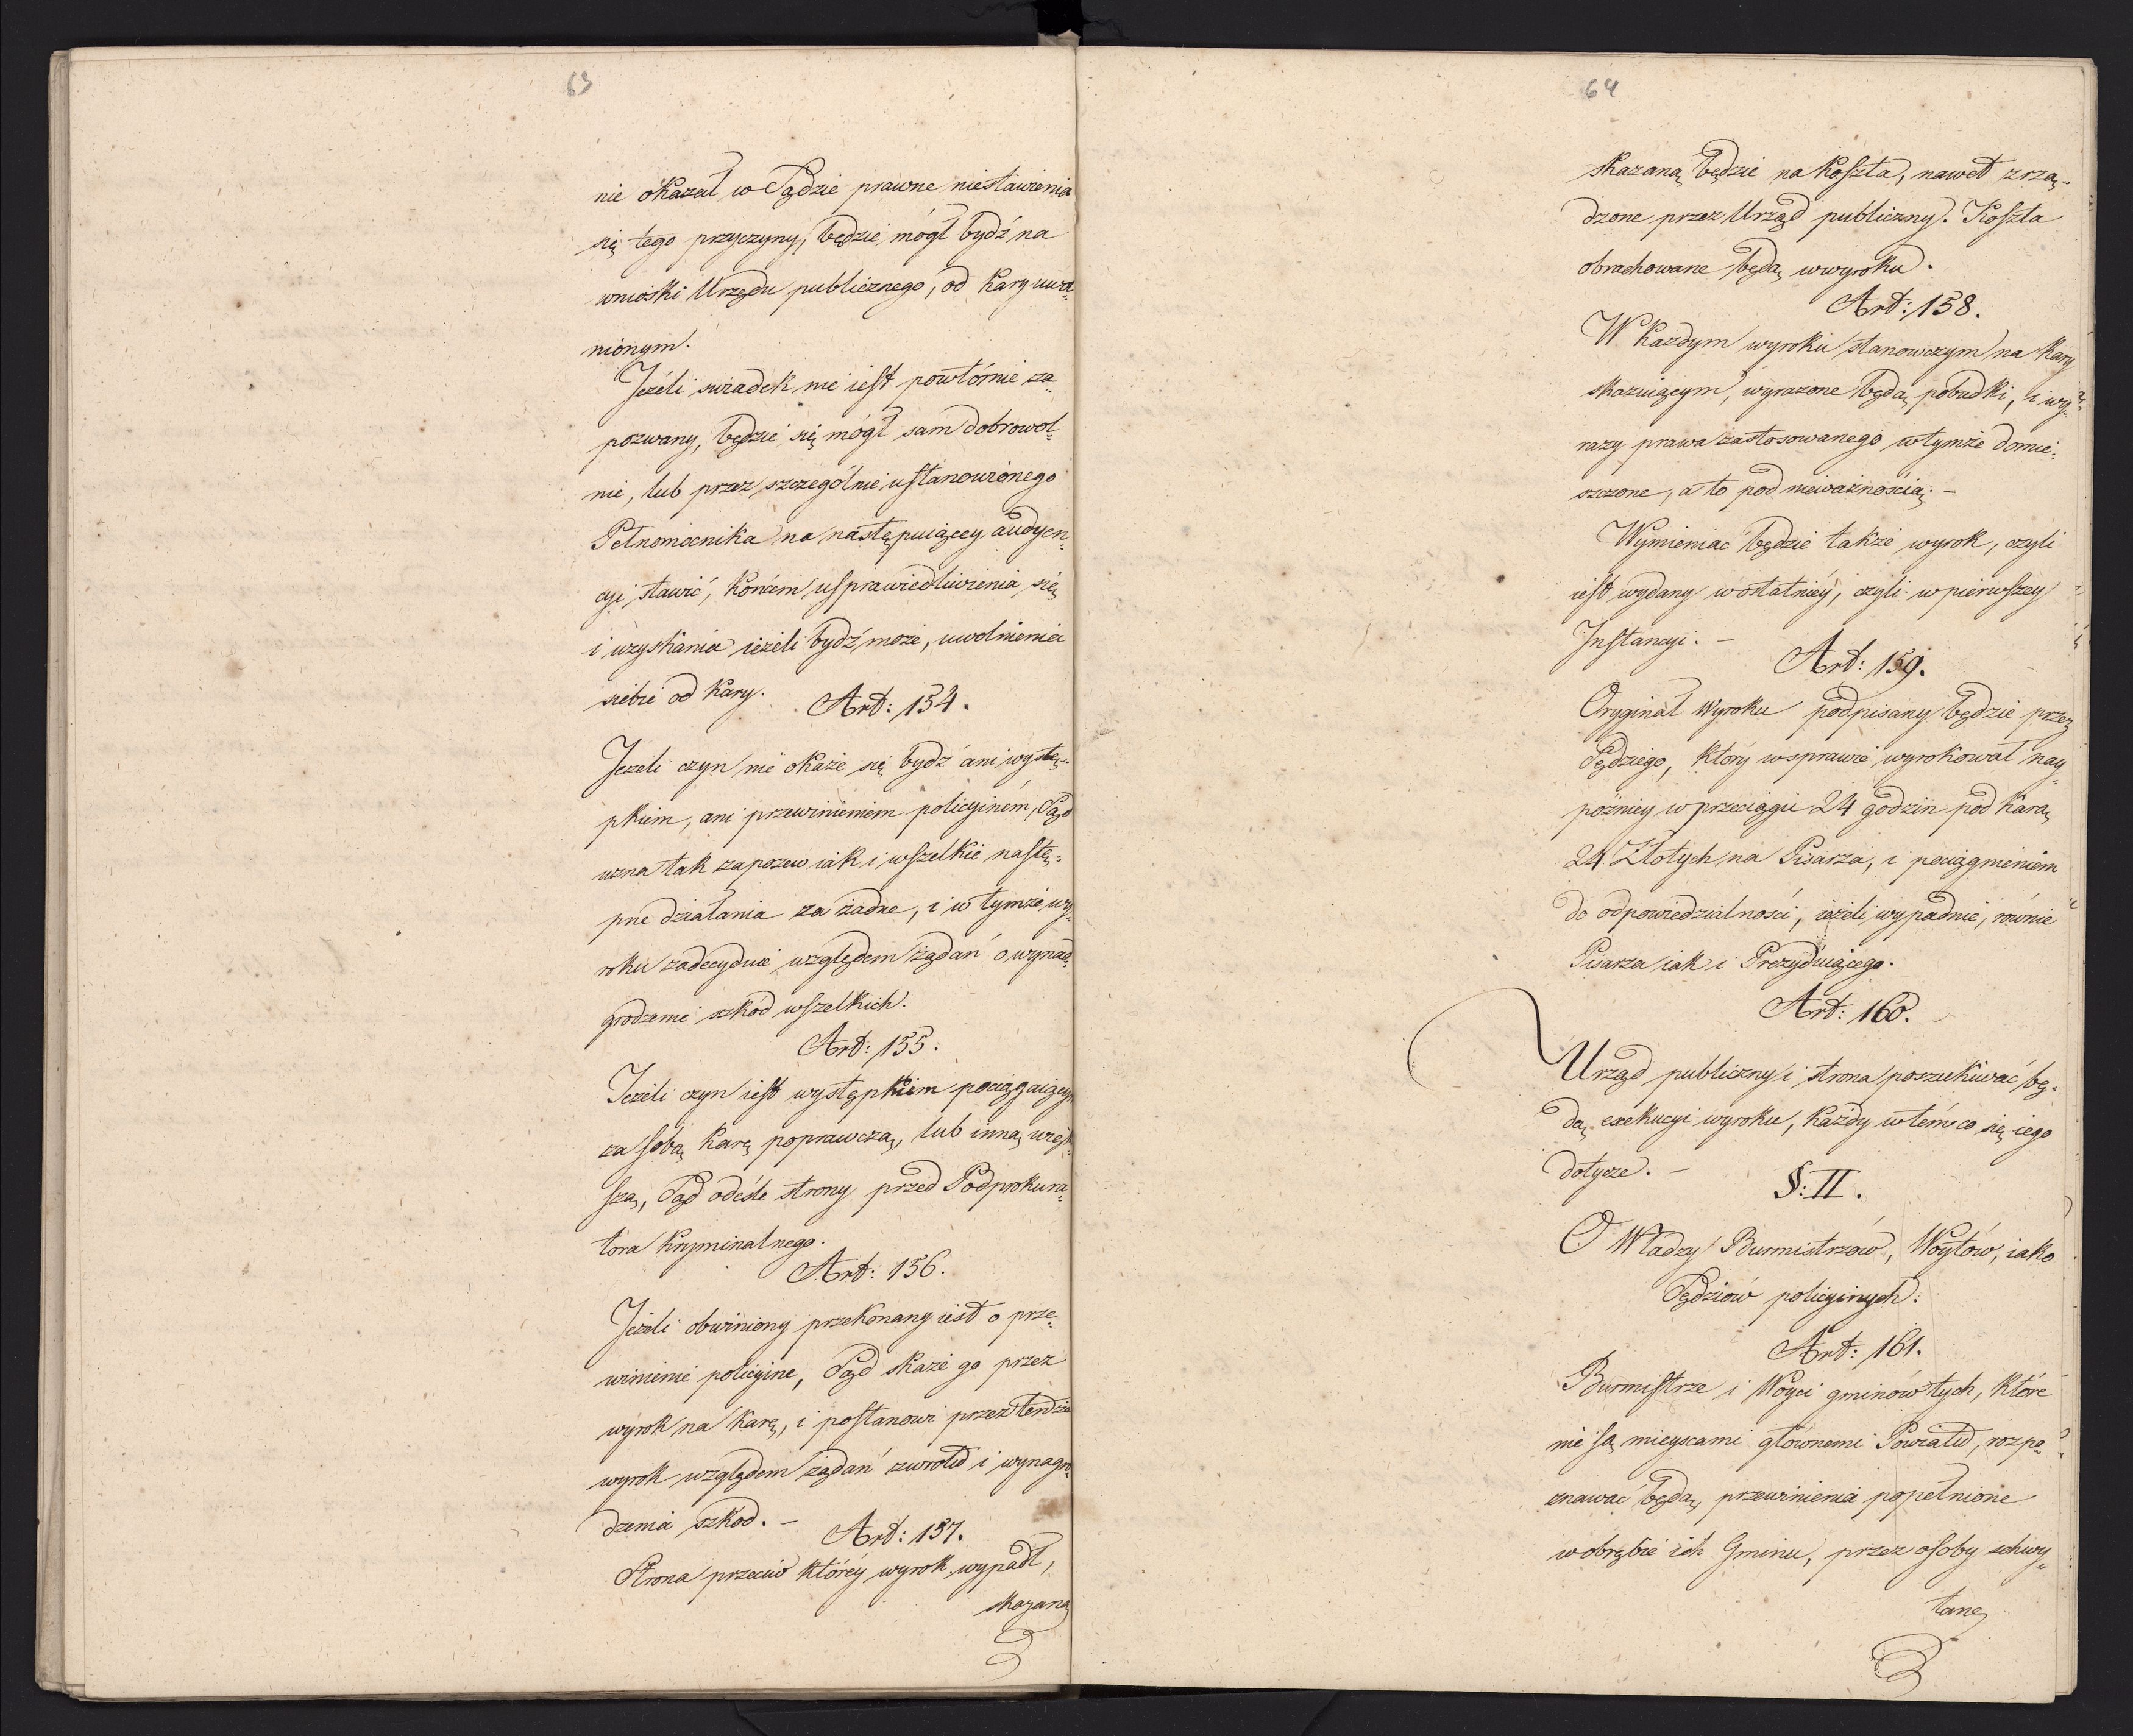 63
nie okazał w Sądzie prawne niestawienia
się tego przyczyny, będzie mógł bydź na
wnioski Urzędu publicznego, od kary uwol-
nionym.
Jeżeli swiadek nie iest powtórnie za-
pozwany, będzie się mógł sam dobrowol-
nie, lub przez szczególnie ustanowionego
Pełnomocnika na następuiącey audyen-
cyi stawić, końcem usprawiedliwienia się
i uzyskania ieżeli bydź może, uwolnienia
siebie od kary.
Art: 154.
Jeżeli czyn nie okaże się bydź ani wystę-
pkiem, ani przewinieniem policyiném, Sąd
uzna tak zapozew iak i wszelkie nastę-
pne działania za żadne, i w tymże wy-
roku zadecyduie względem żądań o wynad-
grodzenie szkód wszelkich.
Art: 155.
Jeżeli czyn iest występkiem pociągaiącym
za sobą karę poprawczą, lub inną więk-
szą, Sąd odeśle strony przed Podprokura-
tora kryminalnego.
Art: 156.
Jeżeli obwiniony przekonany iest o prze-
winienie policyine, Sąd skaże go przez
wyrok na karę, i postanowi przez tenże
wyrok względem żądań zwrotu i wynagro-
dzenia szkód. –
Art: 157.
Strona przeciw którey wyrok wypadł,
skazaną
64
skazaną będzie na koszta, nawet zrzą-
dzone przez Urząd publiczny. Koszta
obrachowane będą w wyroku.
Art: 158.
W każdym wyroku stanowczym na karę
skazuiącym, wyrażone będą pobudki, i wy-
razy prawa zastosowanego w tymże domie-
szczone, a to pod nieważnością. –
Wymieniać będzie także wyrok, czyli
iest wydany w ostatniéy, czyli w pierwszey
Instancyi. –
Art: 159.
Oryginał wyroku podpisany będzie przez
Sędziego, który w sprawie wyrokował nay-
późniey w przeciągu 24 godzin pod karą
24 Złotych na Pisarza, i pociągnieniem
do odpowiedzialności, ieżeli wypadnie, równie
Pisarza iak i Prezyduiącego.
Art: 160.
Urząd publiczny i strona poszukiwać bę-
dą exekucyi wyroku, każdy w tém co się iego
dotycze. –
§: II.
O Władzy Burmistrzów, Woytów, iako
Sędziów policyinych.
Art: 161.
Burmistrze i Woyci gminów tych, które
nie są mieyscami głównemi Powiatu, rozpo-
znawać będą, przewinienia popełnione
w obrębie ich Gminu, przez osoby schwy-
tane